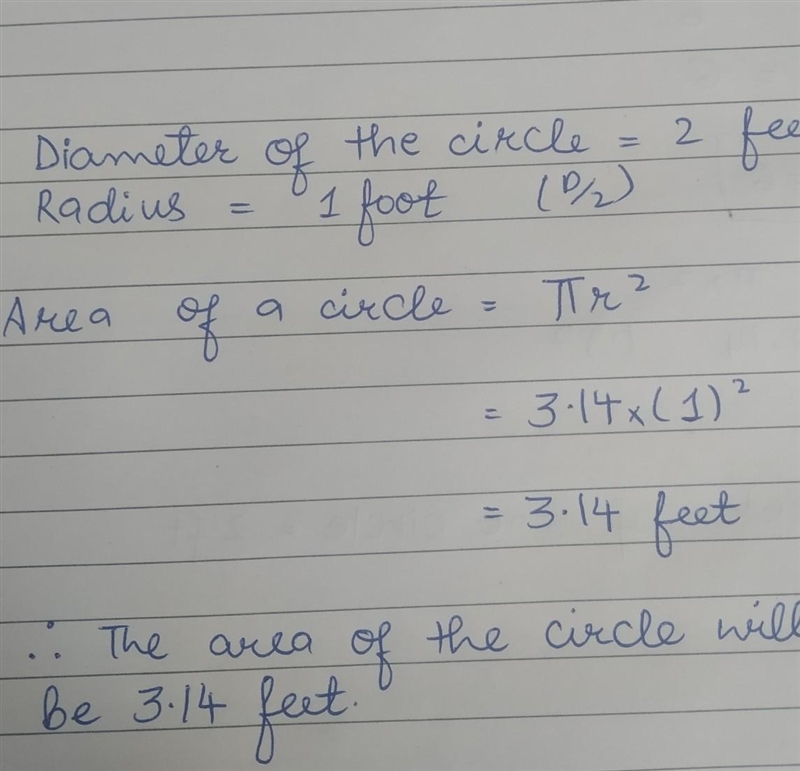 Diameter of the circle = 2 fee
Radius = 1 foot (D/2)
Area of a circle = πr²
= 3.14 × (1)²
= 3.14 feet
∴ The area of the circle will
be 3.14 feet.